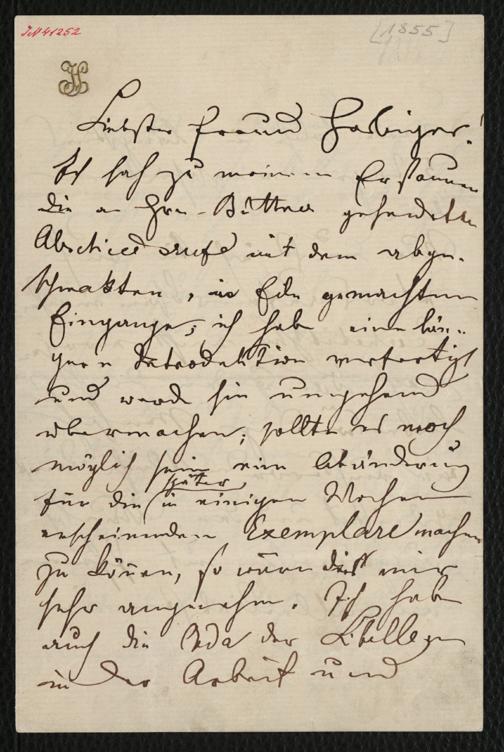 JN 41252
[1855]
JS
Liebster Freund Haslinger!
Ich sah zu meinem Erstaunen
die an Hrn. gesendeten
Abschiedsrufe mit dem abge-
schmakten, in Eile gemachten
Eingange; ich habe eine län-
gere Introduktion verfertigt
und werde sie umgehend
übermachen; sollte es noch
möglich sein eine Abänderung
für die später in einigen Wochen
erscheinenden Exemplare machen
zu können, so wäre dieß mir
sehr angenehm. Ich habe
auch die der Libellen
in der Arbeit und